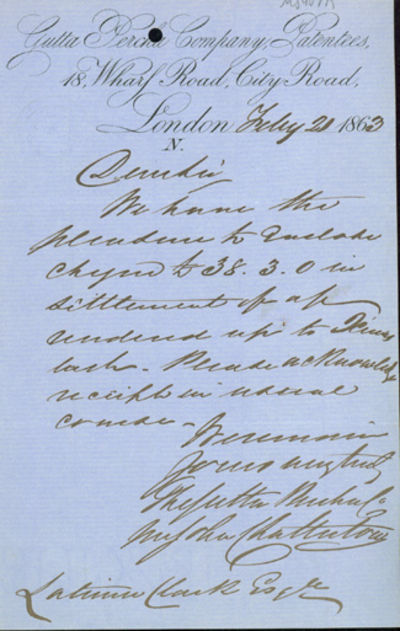 Gutta Percha Company, Patentees,
18, Wharf Road, City Road,
London Feby 20 1863
N.
Dear Sir
We have the
pleasure to enclose
cheque £38. 3. 0 in
settlement of a/c
rendered up to
last. Please acknowledge
receipt in usual
course.
We remain
Yours very truly
The Gutta Percha Co
John Chatterton
Latimer Clark Esqre